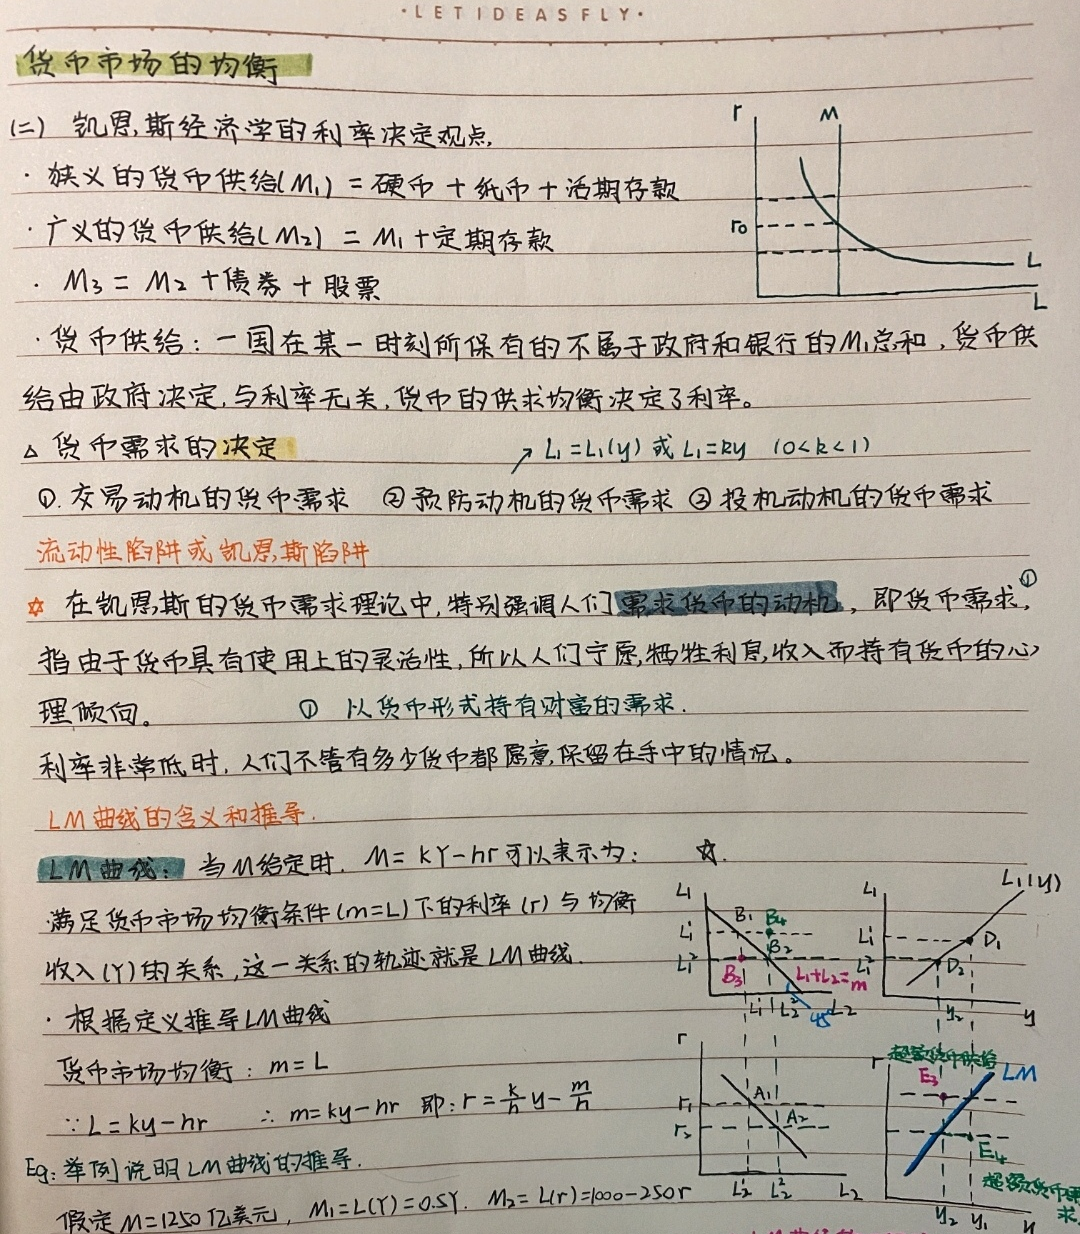 ·LETIDEASFLY·
货币市场的均衡
(二) 凯恩斯经济学的利率决定观点.
· 狭义的货币供给(M₁) = 硬币 + 纸币 + 活期存款
· 广义的货币供给(M₂) = M₁ + 定期存款
· M₃ = M₂ + 债券 + 股票
r
M
r₀
L
L
· 货币供给：一国在某一时刻所保有的不属于政府和银行的M₁总和，货币供
给由政府决定，与利率无关，货币的供求均衡决定了利率。
△ 货币需求的决定
↗ L₁=L₁(y) 或 L₁=ky (0<k<1)
①. 交易动机的货币需求 ② 预防动机的货币需求 ③ 投机动机的货币需求
流动性陷阱或凯恩斯陷阱
☆ 在凯恩斯的货币需求理论中，特别强调人们需求货币的动机，即货币需求①,
指由于货币具有使用上的灵活性，所以人们宁愿牺牲利息收入而持有货币的心
理倾向。 ① 以货币形式持有财富的需求.
利率非常低时，人们不管有多少货币都愿意保留在手中的情况。
LM曲线的含义和推导.
LM曲线： 当M给定时. M=kY-hr可以表示为： ☆.
满足货币市场均衡条件(m=L)下的利率(r)与均衡
收入(Y)的关系，这一关系的轨迹就是LM曲线.
· 根据定义推导LM曲线
货币市场均衡：m=L
∵ L=ky-hr ∴ m=ky-hr 即：r=k/h y - m/h
Eg：举例说明LM曲线的推导.
假定M=1250亿美元，M₁=L(Y)=0.5Y. M₂=L(r)=1000-250r
L₁
B₁ B₄
L₁¹
B₂
L₁²
B₃
L₁+L₂=m
L₂¹ L₂² L₂
45°
L₁
L₁(y)
L₁¹ D₁
L₁² D₂
y₂ y
r
r₁ A₁
r₂ A₂
L₂¹ L₂² L₂
超额货币供给
r
E₃ LM
E₄
超额货币需
求.
y₂ y₁ y